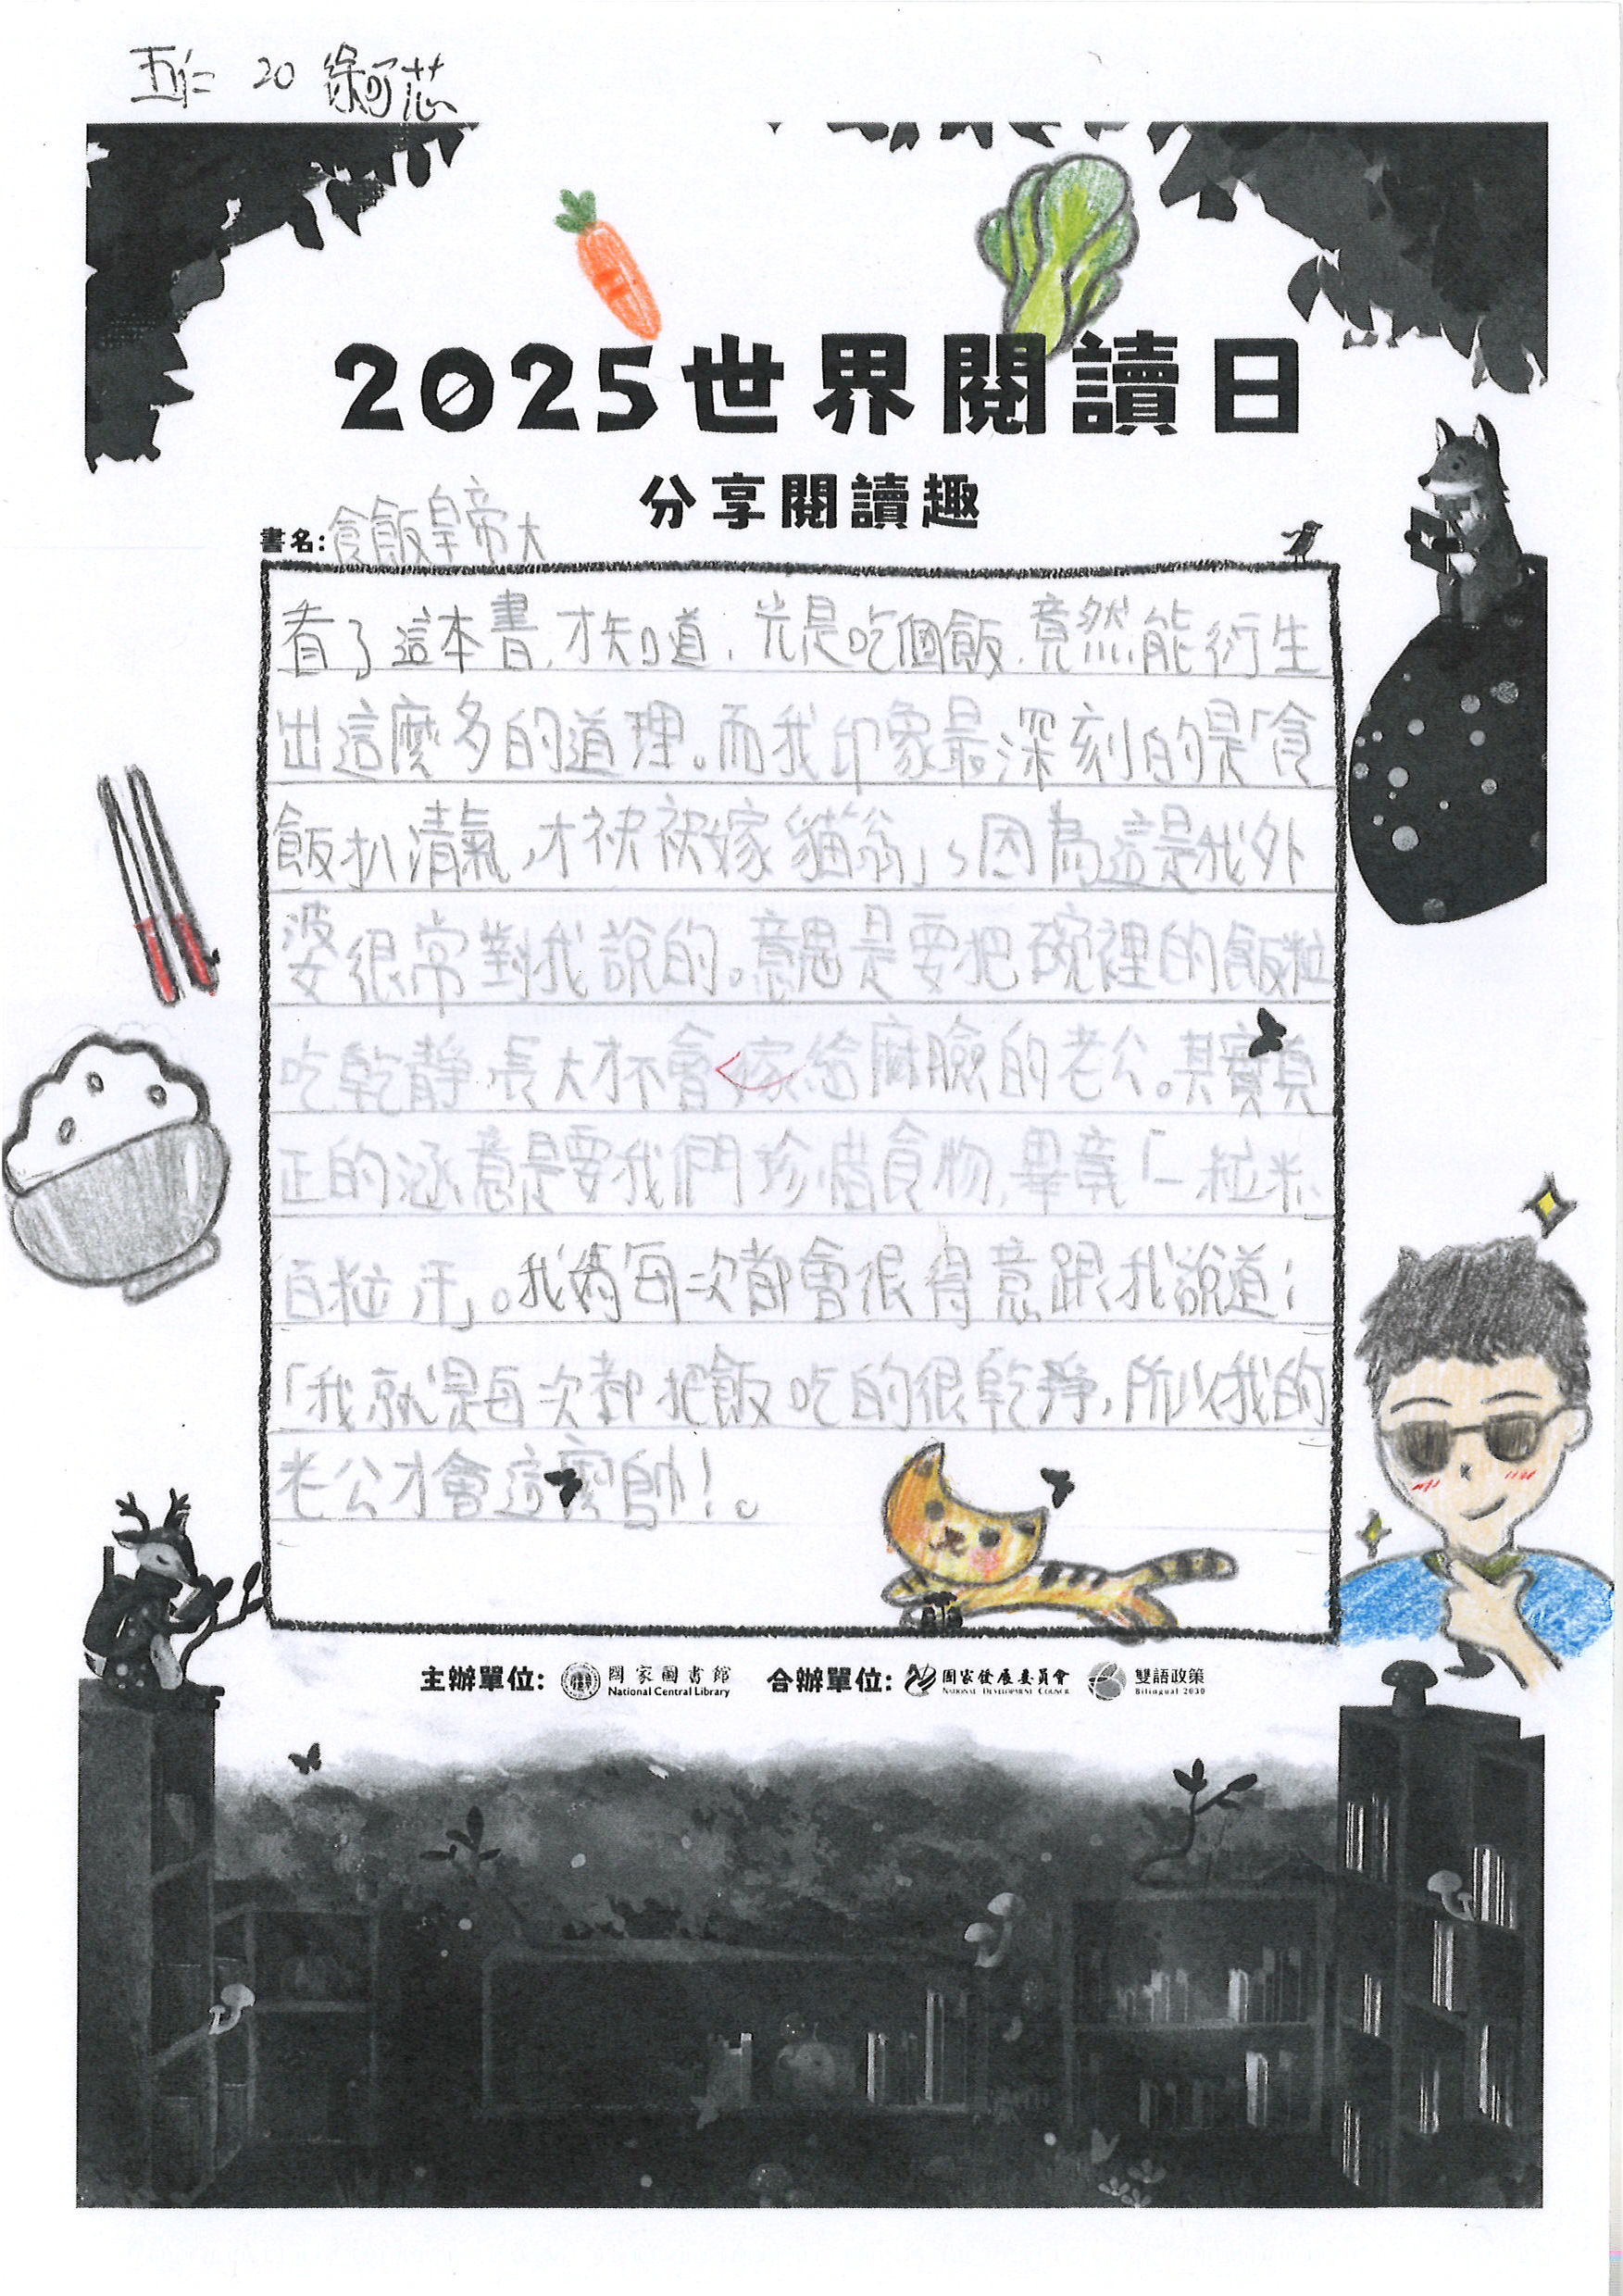 五仁 20 徐可芯
2025世界閱讀日
分享閱讀趣
書名:食飯皇帝大
看了這本書,才知道,光是吃個飯,竟然能衍生
出這麼多的道理。而我印象最深刻的是「食
飯扒清氣,才袂袂嫁貓翁」,因為這是我外
婆很常對我說的。意思是要把碗裡的飯粒
吃乾靜,長大才不會嫁給麻臉的老公。其實真
正的涵意是要我們珍惜食物,畢竟「一粒米
百粒汗」。我媽每次都會很得意跟我說道:
「我就是每次都把飯吃的很乾淨,所以我的
老公才會這麼帥!。
主辦單位: 國家圖書館 National Central Library 合辦單位: 國家發展委員會 National Development Council 雙語政策 Bilingual 2030